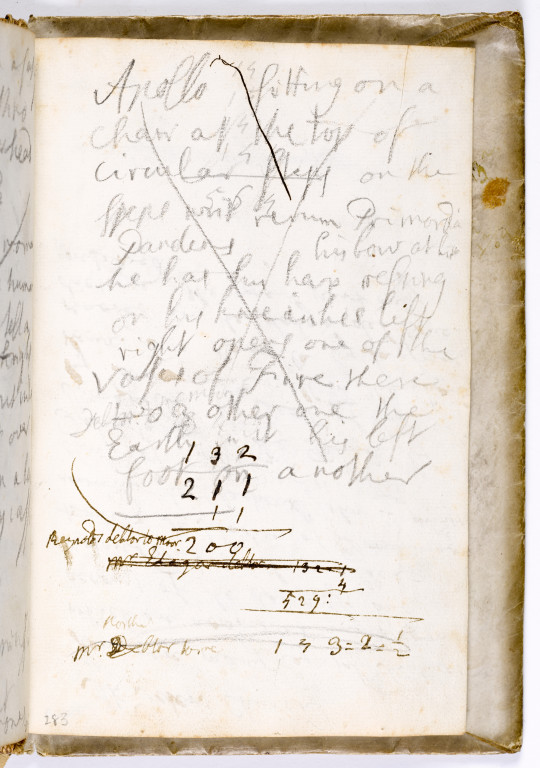 Apollo sitting on a
chair at the top of
circular steps on the
steps writ rerum Primordia
Pandens his bow at his
he has his harp resting
on his knee in his left
right opens one of the
Vases of Fire there
two other one the
Earth with his left
foot on another
1 3 2
2 1 1
1 1
debtor to mor: 2 0 0
Mr debtor 1 3 2 1
4
529:
Mr debtor to me 1 3 3 = 2 = 1/2
283